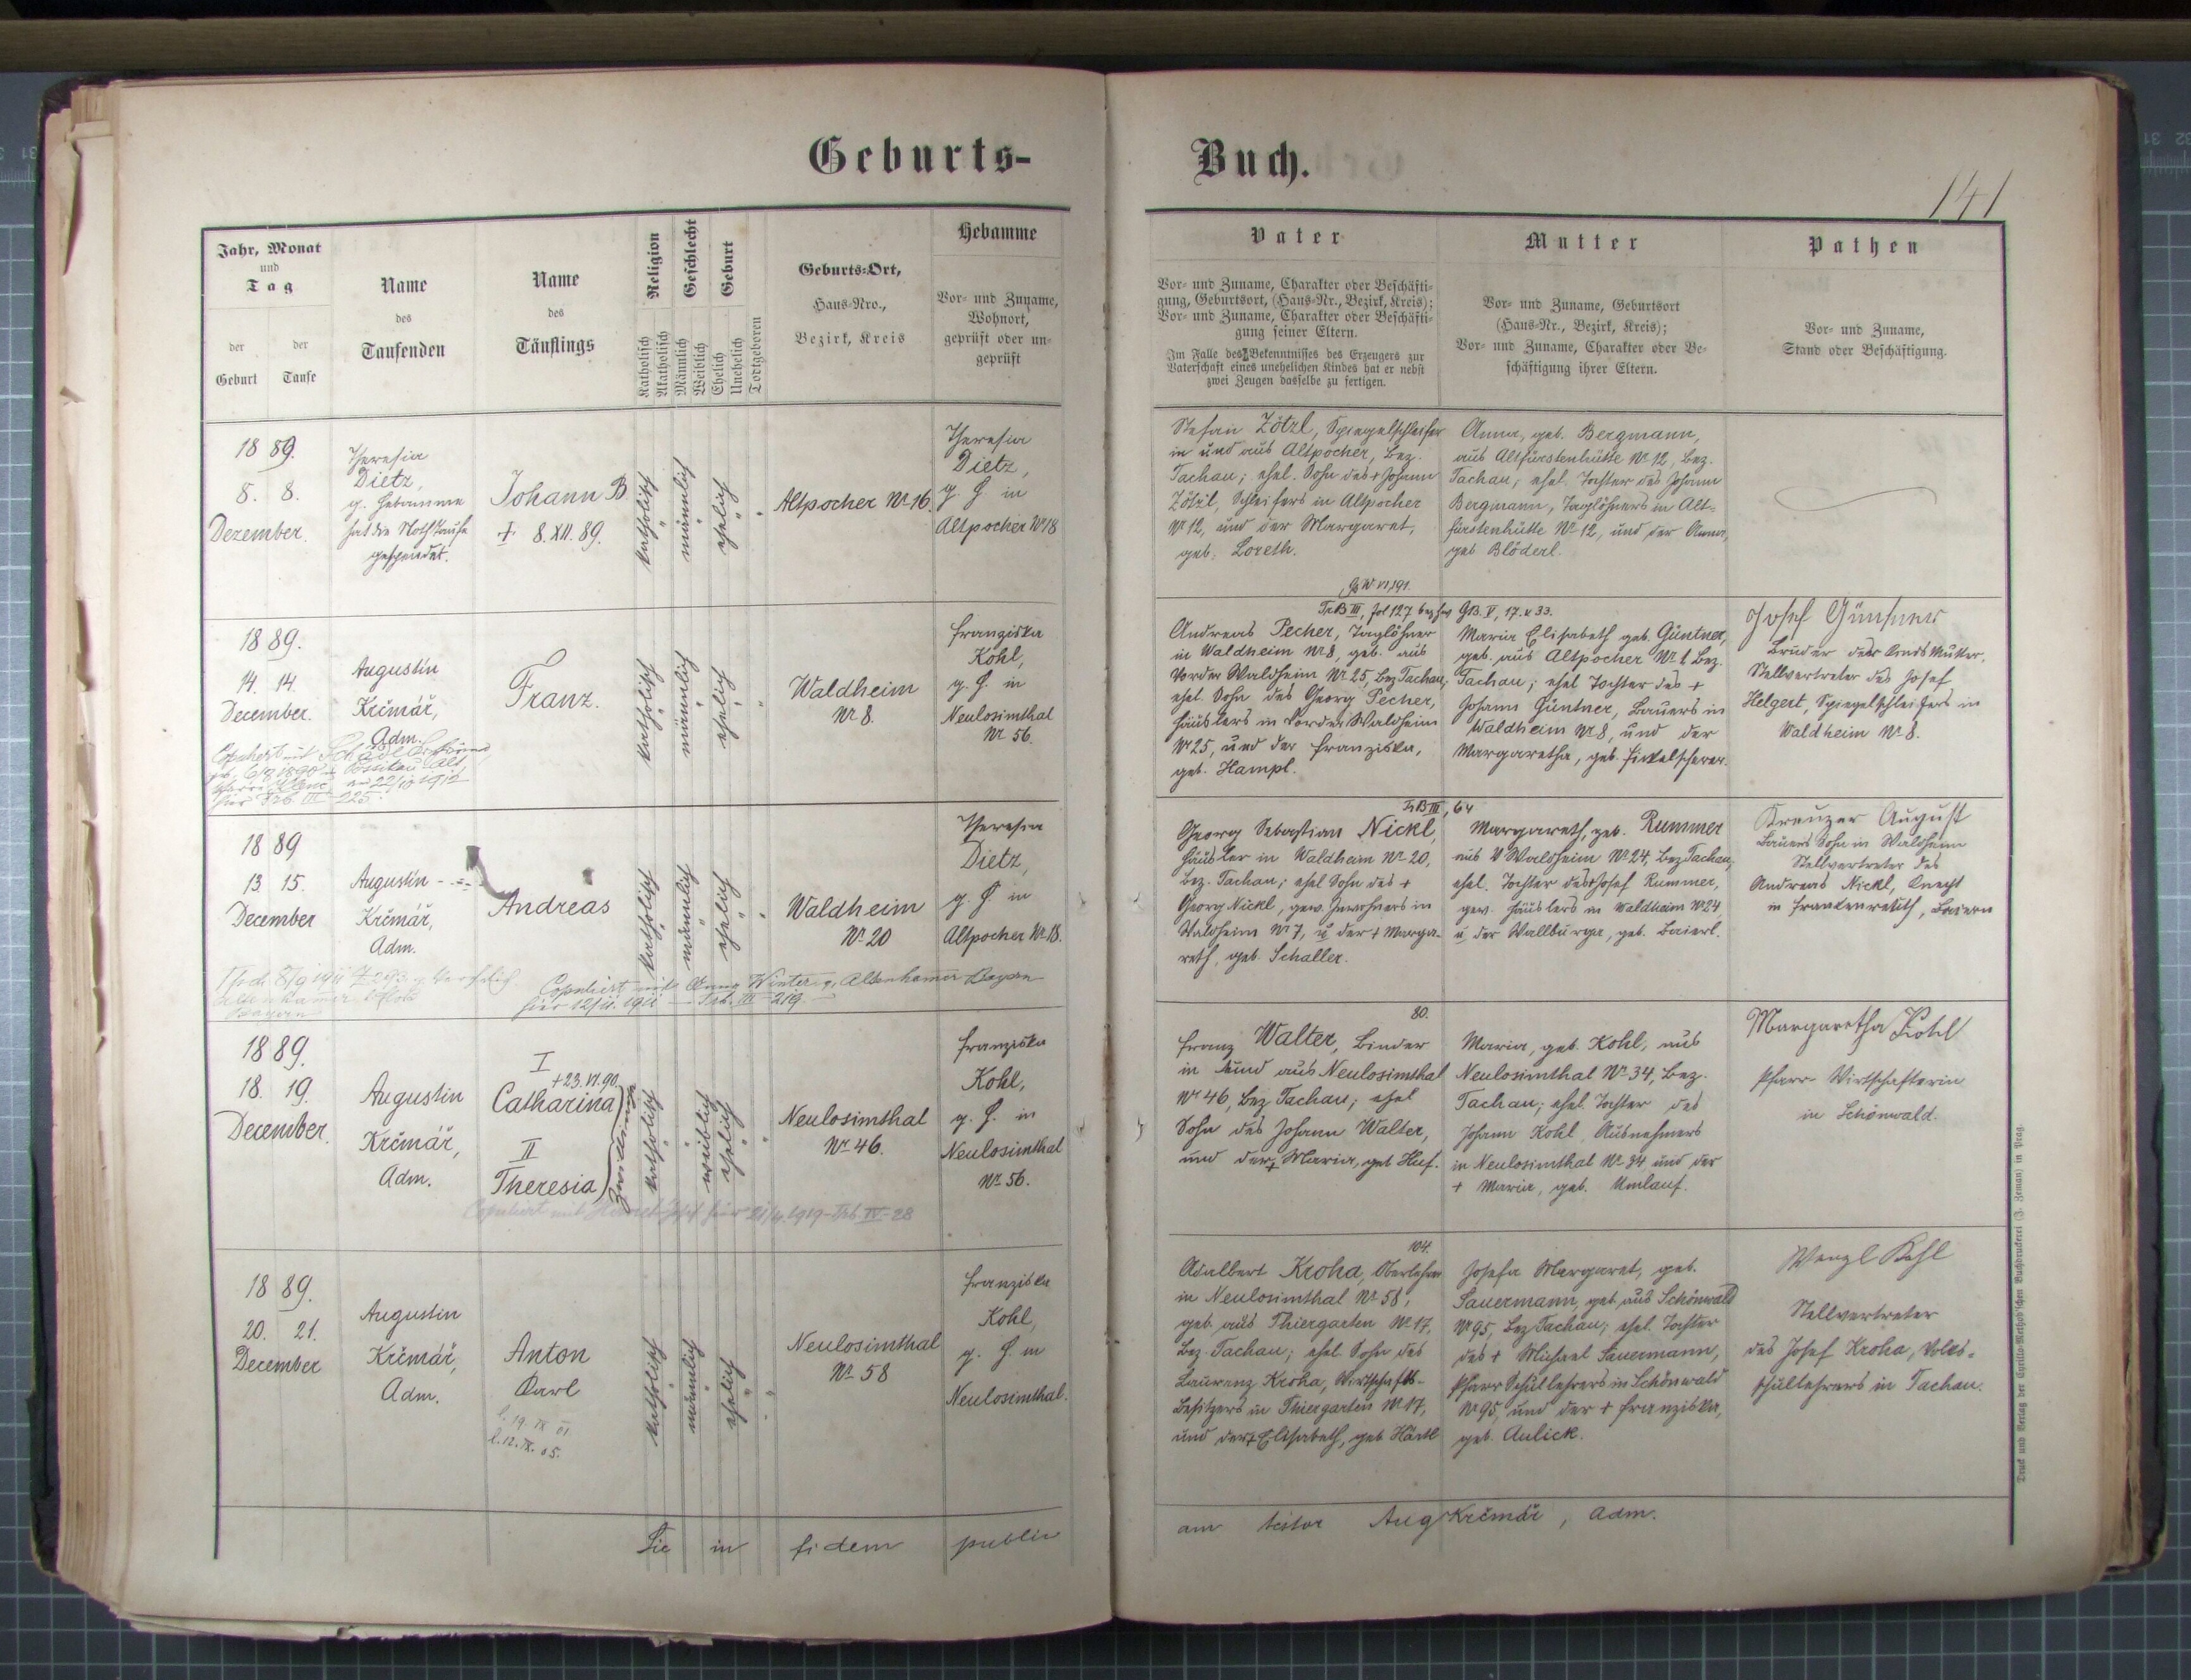 Geburts-Buch.
141
Jahr, Monat
und
Tag
der Geburt
der Taufe
Name
des
Taufenden
Name
des
Täuflings
Religion
Katholisch
Akatholisch
Geschlecht
Männlich
Weiblich
Geburt
Ehelich
Unehelich
Todtgeboren
Geburts-Ort,
Haus-Nro.,
Bezirk, Kreis
Hebamme
Vor- und Zuname,
Wohnort,
geprüft oder un-
geprüft
Vater
Vor- und Zuname, Charakter oder Beschäfti-
gung, Geburtsort, (Haus-Nr., Bezirk, Kreis);
Vor- und Zuname, Charakter oder Beschäfti-
gung seiner Eltern.
Im Falle des Bekenntnisses des Erzeugers zur
Vaterschaft eines unehelichen Kindes hat er nebst
zwei Zeugen dasselbe zu fertigen.
Mutter
Vor- und Zuname, Geburtsort
(Haus-Nr., Bezirk, Kreis);
Vor- und Zuname, Charakter oder Be-
schäftigung ihrer Eltern.
Pathen
Vor- und Zuname,
Stand oder Beschäftigung.
1889.
8. 8.
Dezember.
Theresia
Dietz,
g. Hebamme
hat die Nothtaufe
gespendet.
Johann B.
+ 8.XII.89.
katholisch
männlich
ehelich
Altpocher Nr. 16.
Theresia
Dietz,
g. H. in
Altpocher Nr 18
Stefan Zötzl, Spiegelschleifer
in und aus Altpocher, Bez.
Tachau; ehel. Sohn des + Johann
Zötzl, Schleifers in Altpocher
Nr 12, und der Margaret,
geb. Loreth.
Anna, geb. Bergmann,
aus Altfürstenhütte Nr 12, Bez.
Tachau, ehel. Tochter des Johann
Bergmann, Taglöhners in Alt-
fürstenhütte Nr 12, und der Anna,
geb. Blöderl.
1889.
14. 14.
December.
Augustin
Krčmář,
Adm.
Franz.
katholisch
männlich
ehelich
Waldheim
Nr 8.
Franziska
Kohl,
g. H. in
Neulosimthal
Nr 56.
TrB III, fol 127 GB. V, 17. u 33.
Andreas Pecher, Taglöhner
in Waldheim Nr 8, geb. aus
Vorder Waldheim Nr 25, Bez Tachau,
ehel. Sohn des Georg Pecher,
Häuslers in Vorder Waldheim
Nr 25, und der Franziska,
geb. Hampl.
Maria Elisabeth geb. Güntner,
geb. aus Altpocher Nr 1 Bez.
Tachau; ehel Tochter des +
Johann Güntner, Bauers in
Waldheim Nr 8, und der
Margaretha, geb. Finkelscherer.
Josef Güntner
Bruder der Kinds Mutter,
Stellvertreter des Josef
Helgert, Spiegelschleifers in
Waldheim Nr 8.
1889
13 15.
December
Augustin
Krčmář,
Adm.
Andreas
katholisch
männlich
ehelich
Waldheim
Nr 20
Theresia
Dietz,
g. H. in
Altpocher Nr 18.
Copuliert mit Anna Winter, Altenhamer Bayern
hier 12/11. 1911 - Trb. III 219.
TrB III, 64
Georg Sebastian Nickl,
Häusler in Waldheim Nr 20,
Bez. Tachau; ehel Sohn des +
Georg Nickl, gew. Inwohners in
Waldheim Nr 7, u der + Marga-
reth, geb. Schaller.
Margareth, geb. Rummer
aus V Waldheim Nr 24, Bez Tachau,
ehel. Tochter des + Josef Rummer,
gew. Häuslers in Waldheim Nr 24
u der Wallburga, geb. Baierl.
Kreuzer August
Bauers Sohn in Waldheim
Stellvertreter des
Andreas Nickl, Knecht
in Frankenreuth, Baiern
1889.
18. 19.
December.
Augustin
Krčmář,
Adm.
I
+ 23.VI.90.
Catharina
II
Theresia
Zwillinge
katholisch
weiblich
ehelich
Neulosimthal
Nr 46.
Franziska
Kohl,
g. H. in
Neulosimthal
Nr 56.
Copuliert mit Josef hier 21/4.1919 - Trb. IV. 28
80.
Franz Walter, Binder
in und aus Neulosimthal
Nr 46, Bez Tachau; ehel
Sohn des Johann Walter,
und der + Maria, geb Huf.
Maria, geb. Kohl, aus
Neulosimthal Nr 34, Bez.
Tachau; ehel. Tochter des
Johann Kohl, Ausnehmers
in Neulosimthal Nr 34 und der
+ Maria, geb. Umlauf.
Margaretha Kohl
Pfarr- Wirtschafterin
in Schönwald.
1889.
20. 21.
December
Augustin
Krčmář,
Adm.
Anton
Karl
l. 19. IX 01
l. 12. IX. 05.
katholisch
männlich
ehelich
Neulosimthal
Nr 58
Franziska
Kohl,
g. H. in
Neulosimthal.
104.
Adalbert Kroha, Oberlehrer
in Neulosimthal Nr 58,
geb. aus Thiergarten Nr 17,
Bez. Tachau; ehel. Sohn des
Laurenz Kroha, Wirtschafts-
besitzers in Thiergarten Nr 17,
und der + Elisabeth, geb Härtl
Josefa Margaret, geb.
Sauermann, geb. aus Schönwald
Nr 95, Bez Tachau; ehel. Tochter
des + Michael Sauermann,
Pfarr Schullehrers in Schönwald
Nr 95, und der + Franziska,
geb. Aulick.
Wenzl Kohl
Stellvertreter
des Josef Kroha, Volks-
schullehrers in Tachau.
Sic in fidem publicam testor Aug Krčmář, Adm.
Druck und Verlag der Cyrillo-Method'schen Buchdruckerei (J. Zeman) in Prag.